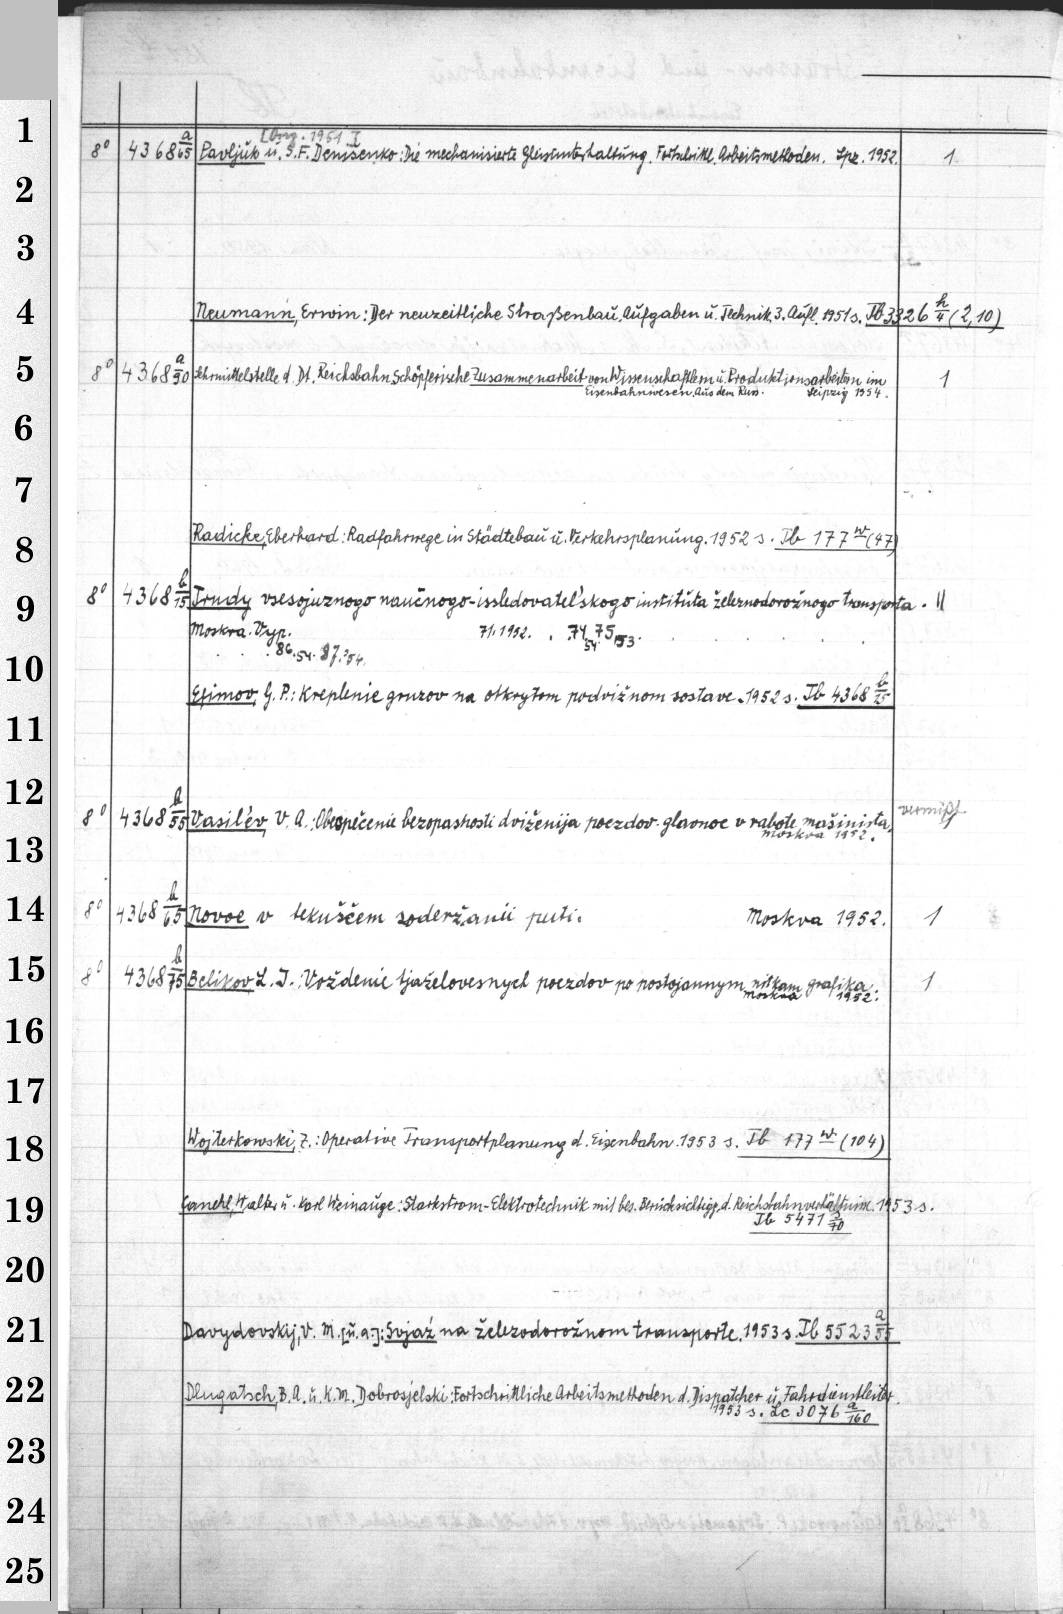 1
[Orig. 1951]
8° 4368 a/65 Pavljuk u. S. F. Deniščenko: Die mechanisierte Gleisunterhaltung. Fortschrittl. Arbeitsmethoden. Lpz. 1952. 1
2
3
4
Neumann, Erwin: Der neuzeitliche Straßenbau. Aufgaben u. Technik. 3. Aufl. 1951 s. Tb 3326 h/4 (2,10)
5
8° 4368 a/90 Lehrmittelstelle d. Dt. Reichsbahn. Schöpferische Zusammenarbeit von Wissenschaftlern u. Produktionsarbeitern im 1
Eisenbahnwesen. Aus dem Russ. Leipzig 1954.
6
7
8
Radicke, Eberhard: Radfahrwege in Städtebau u. Verkehrsplanung. 1952 s. Tb 177 w (47)
9
8° 4368 b/15 Trudy vsesojuznogo naučnogo-issledovatel'skogo instituta železnodorožnogo transporta. 11
Moskva. Vyp. 71. 1952. . 74, 75,
54 153.
86. 54. 87. '54.
10
Efimov, G. P.: Kreplenie gruzov na otkrytom podvižnom sostave. 1952 s. Tb 4368 b/15
11
12
8° 4368 b/55 Vasil'ev, V. A.: Obespečenie bezopasnosti dviženija poezdov - glavnoe v rabote mašinista. vermißt
Moskva 1952.
13
14
8° 4368 b/65 Novoe v tekuščem soderžanii puti. Moskva 1952. 1
15
8° 4368 b/75 Belikov, L. I.: Voždenie tjaželovesnych poezdov po postojannym nitkam grafika. 1
Moskva 1952.
16
17
18
Wojterkowski, Z.: Operative Transportplanung d. Eisenbahn. 1953 s. Tb 177 w (104)
19
Walter u. Karl Weinauge: Starkstrom-Elektrotechnik mit bes. Berücksichtigg. d. Reichsbahnverhältnisse. 1953 s.
Tb 5471 /70
20
21
Davydovskij, V. M. [u. a.]: Svjaź na železodorožnom transporte. 1953 s. Tb 5523 a/55
22
Dlugatsch, B. A. u. K. M. Dobrosjelski: Fortschrittliche Arbeitsmethoden d. Dispatcher u. Fahrdienstleiter.
1953 s. Lc 3076 a/160
23
24
25